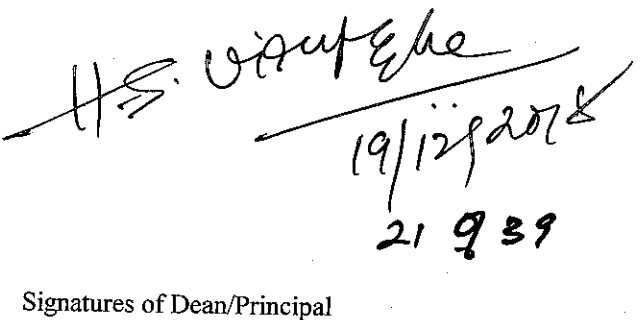 H.S.
19/12/2018
21 9 39
Signatures of Dean/Principal